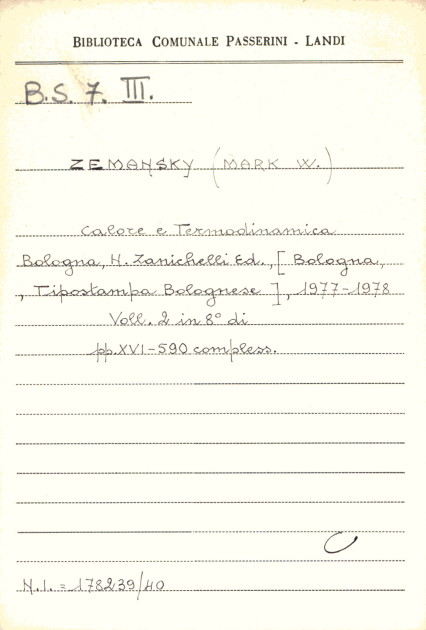 BIBLIOTECA COMUNALE PASSERINI - LANDI
B.S. 7. III.
ZEMANSKY (MARK W.)
Calore e Termodinamica
Bologna, N. Zanichelli Ed., [Bologna,
, Tipostampa Bolognese], 1977-1978
Voll. 2 in 8° di
pp. XVI-590 compless.
N.I. = 178239/40